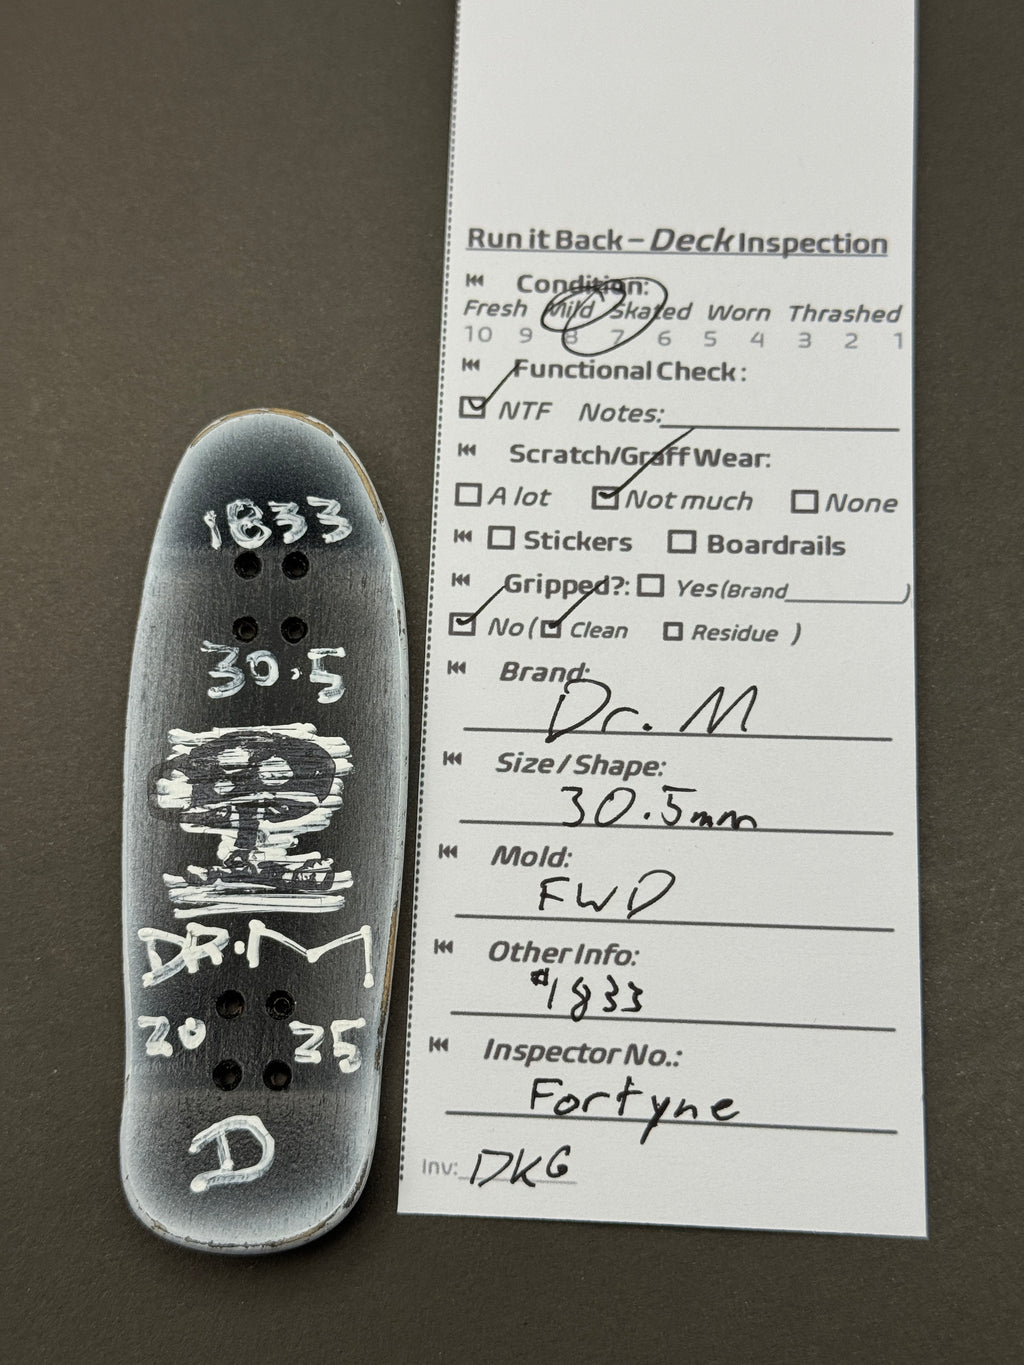 1833
30.5
DR.M
30 35
D
Run it Back – Deck Inspection
Condition:
Fresh Mild Skated Worn Thrashed
10 9 8 7 6 5 4 3 2 1
Functional Check:
NTF Notes:
Scratch/Graff Wear:
A lot Not much None
Stickers Boardrails
Gripped?: Yes (Brand )
No ( Clean Residue )
Brand:
Dr. M
Size / Shape:
30.5mm
Mold:
FWD
Other Info:
#1833
Inspector No.:
Fortyne
Inv: DKG